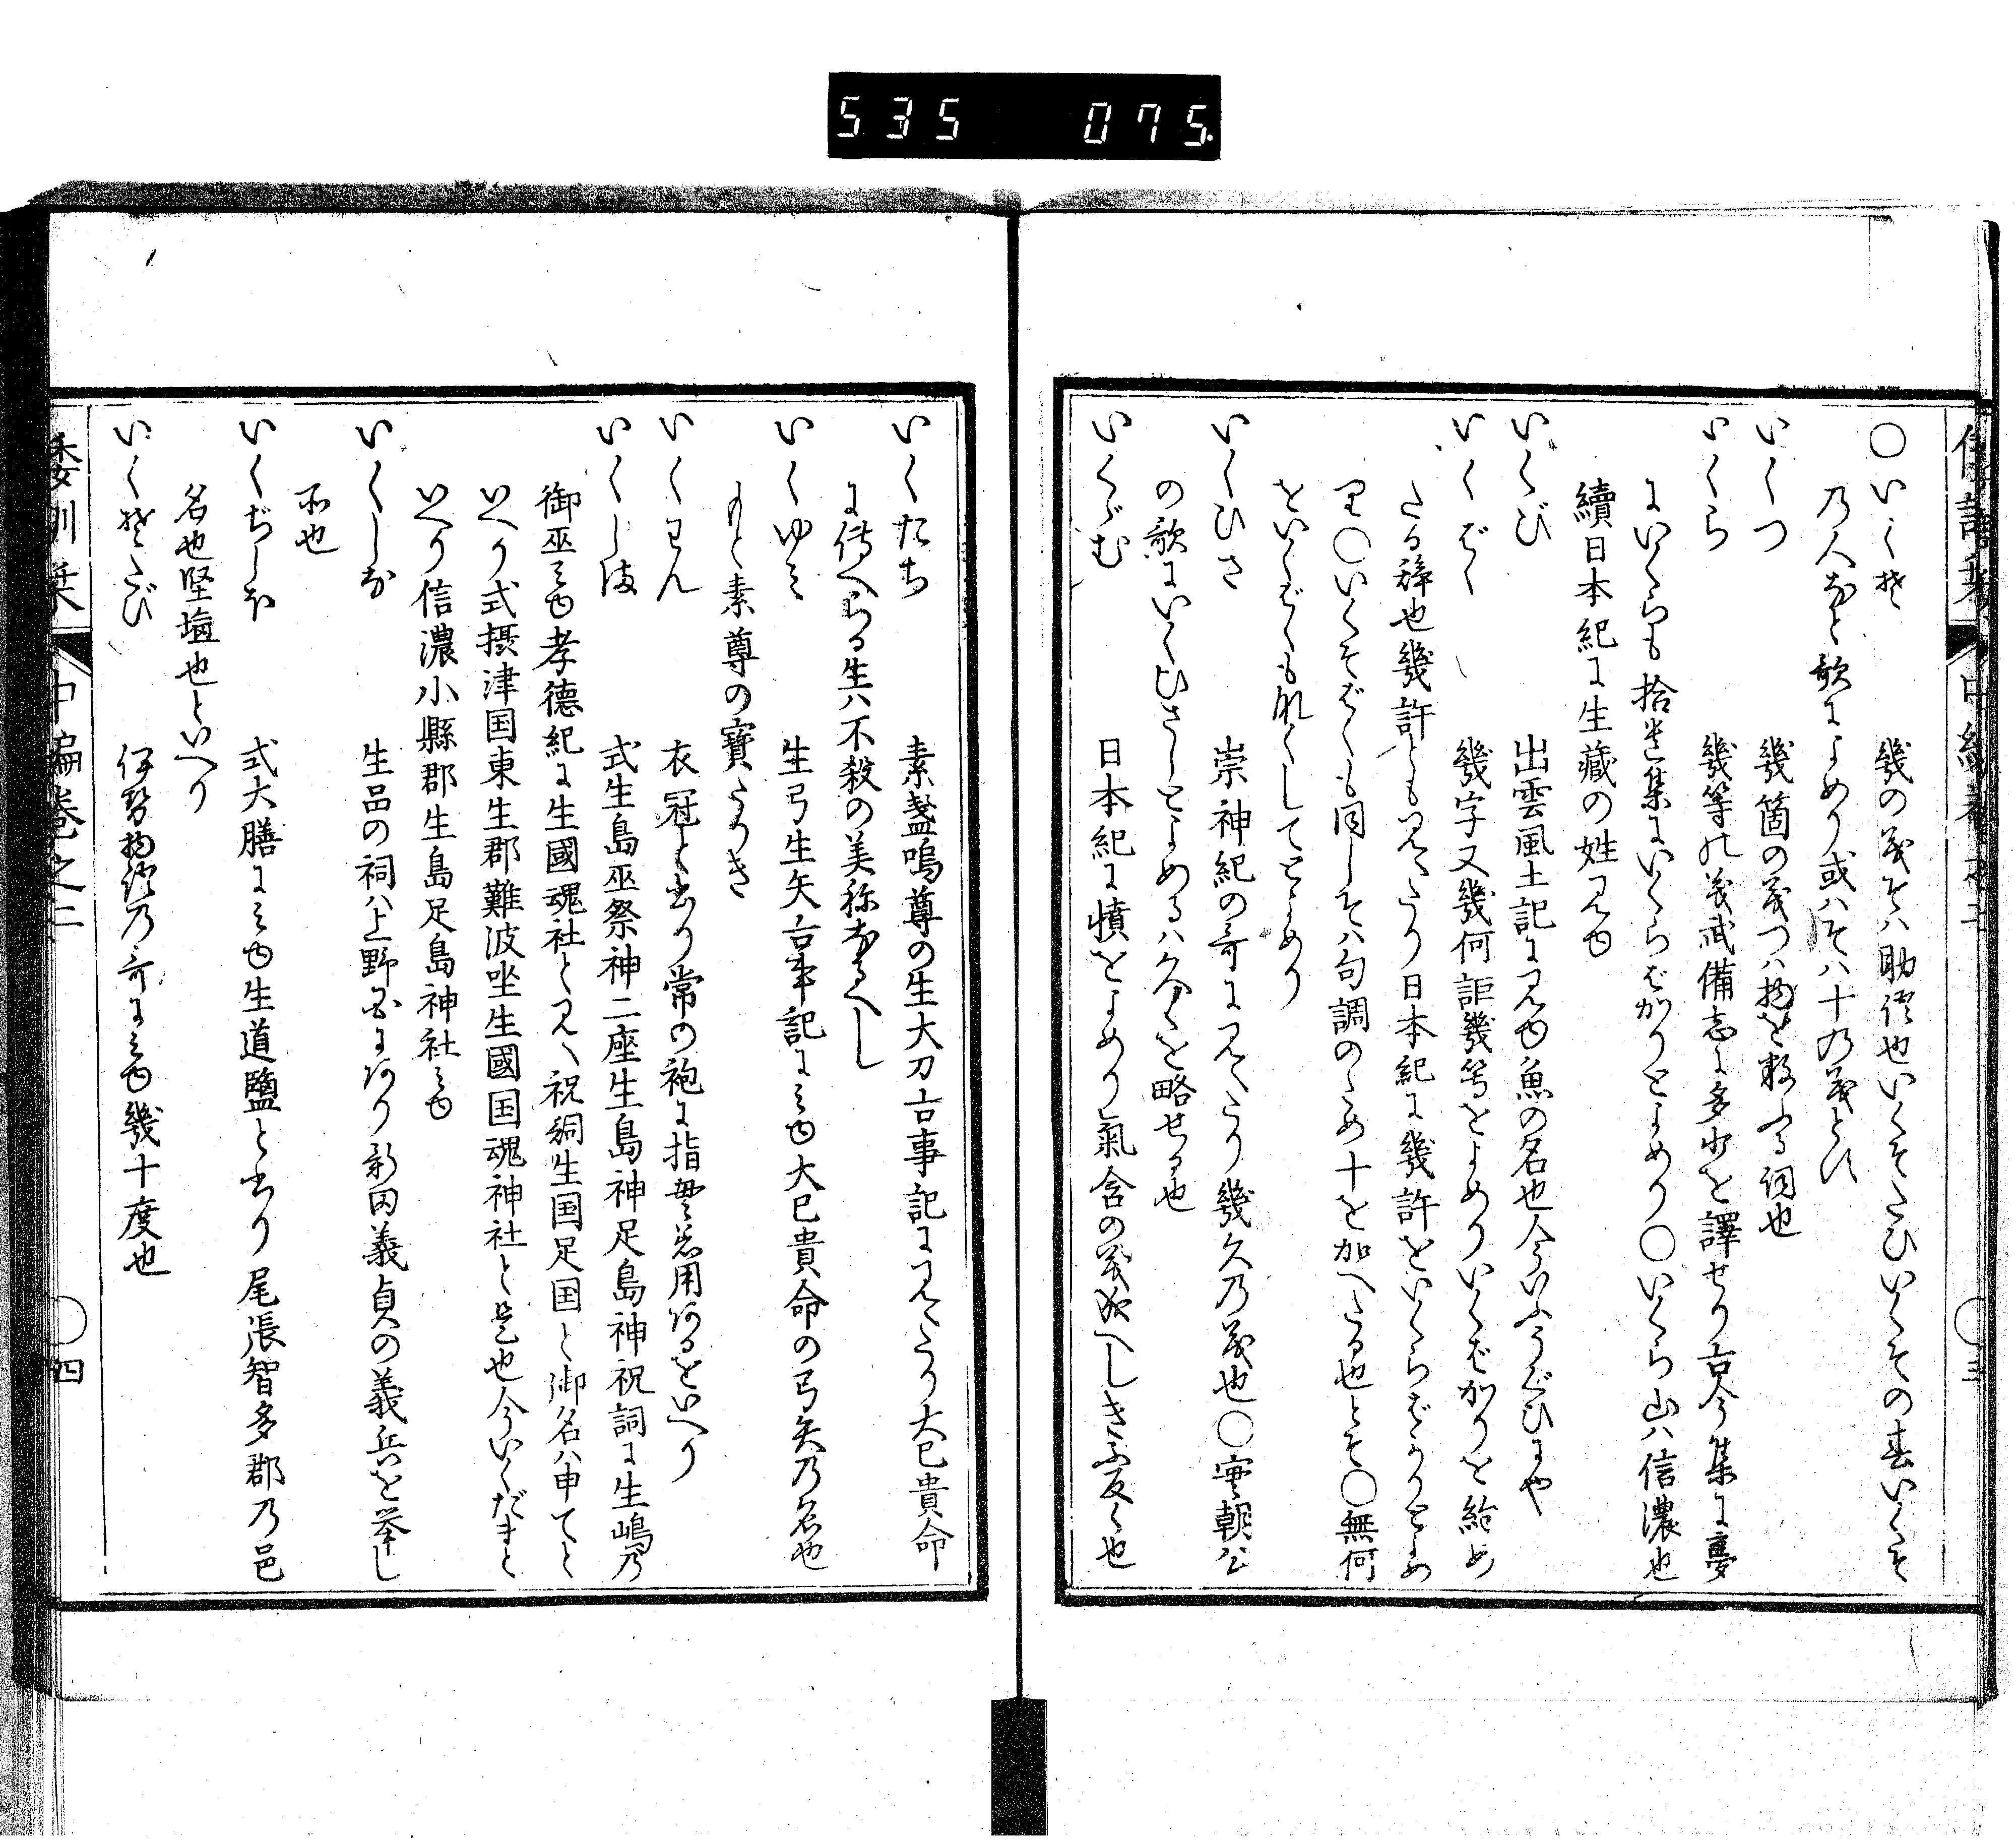 535 075.
○いくそ 幾の義そハ助語也いくそたひいくその春いくそ
乃人なと歌によめり或ハそハ十の義とハ
いくつ 幾箇の義つハ物を数ふる詞也
いくら 幾等の義武備志に多少を譯せり古今集に夢
にいくらも拾遺集にいくらばかりとよめり○いくら山ハ信濃也
續日本紀に生藏の姓見ゆ
いくび 出雲風土記に見ゆ魚の名也今いふうぐひにや
いくばく 幾字又幾何詎幾等をよめりいくばかりを給め
たる辞也幾許ともいへたり日本紀に幾許をいくらばかりとよめ
り○いくそばくも同しそハ句調のため十を加へたる也とそ○無何
をいくばくもなくしてとよめり
いくひさ 崇神紀の哥に見えたり幾久乃義也○実朝公
の歌にいくひさしとよめるハ久しを略せる也
いくゝむ 日本紀に憤をよめり氣含の義成へしきふ反く也
いくたち 素盞嗚尊の生大刀古事記に見えたり大巳貴命
に傳へらる生ハ不殺の美称なるへし
いくゆミ 生弓生矢古事記にミゆ大巳貴命の弓矢乃名也
もと素尊の寶たりき
いくわん 衣冠と書り常の袍に指貫着用あるをいへり
いくしま 式生島巫祭神二座生島神足島神祝詞に生嶋乃
御巫ミゆ孝德紀に生國魂社と見へ祝詞生国足国と御名ハ申てと
いへり式摂津国東生郡難波坐生國国魂神社と是也今いくだまと
いへり信濃小縣郡生島足島神社ミゆ
いくしな 生品の祠ハ上野国にあり新田義貞の義兵を挙し
所也
いくぢしほ 式大膳にミゆ生道鹽と書り尾張智多郡乃邑
名也堅塩也といへり
いくそたび 伊勢物語乃哥にミゆ幾十度也
倭訓栞 中編巻之二 ○四